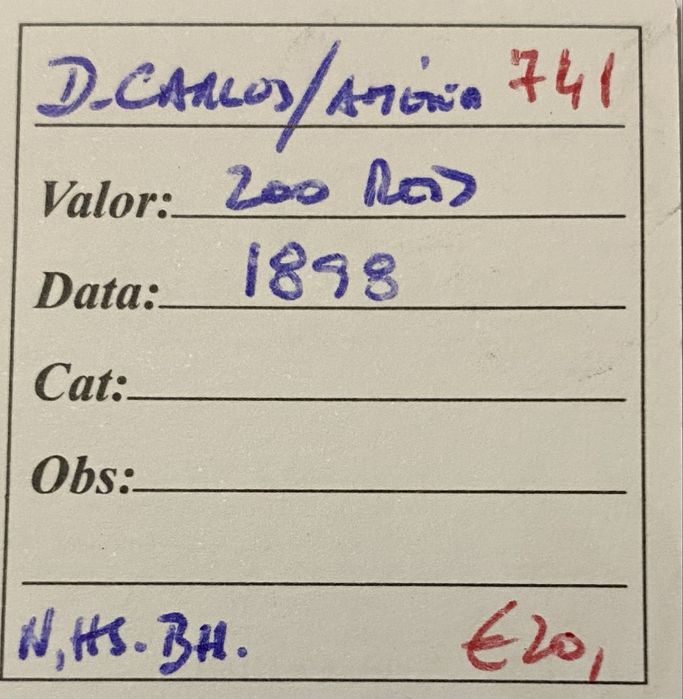 D. CARLOS/AMÉLIA 741
Valor: 200 Reis
Data: 1898
Cat:
Obs:
N, HS. BH.
€20,